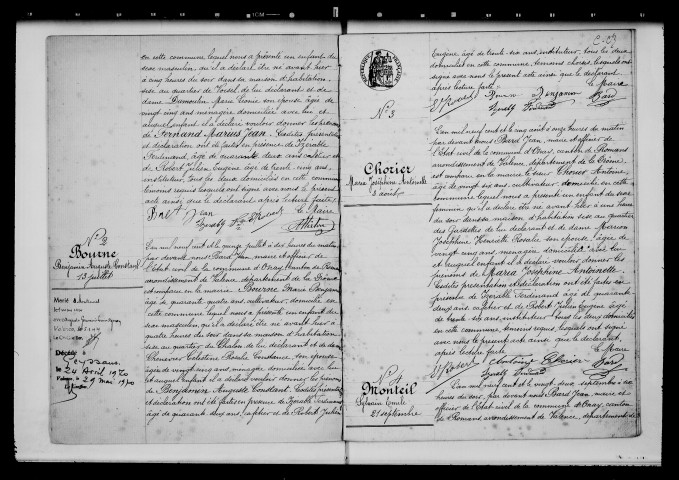 en cette commune lequel nous a présenté un enfant du
sexe masculin qu'il a déclaré être né avant hier
à cinq heures du soir dans sa maison d'habitation
sise au quartier de lui déclarant et de
dame Dumoulin Marie Léonie son épouse âgée de
vingt cinq ans ménagère domiciliée avec lui et
auquel enfant il a déclaré vouloir donner les prénoms
de Fernand Marius Jean. Lesdites présentation
et déclaration ont été faites en présence de Izerable
Ferdinand, âgé de quarante deux ans cafetier et
de Robert Julien Eugène âgé de trente cinq ans
instituteur, tous les deux domiciliés en cette commune
témoins requis lesquels ont signé avec nous le présent
acte ainsi que le déclarant après lecture faite.
le Maire
N° 2
Bourne
Benjamin Auguste Constant
13 juillet
Décédé à
Geyssans
le 24 Avril 1970
29 mai 1970
L'an mil neuf cent et le juillet à dix heures du matin
par devant nous Bard Jean, maire et officier de
l'état civil de la commune d'Onay, canton de Romans
arrondissement de Valence, département de la Drôme
est comparu en la mairie Bourne Marie Benjamin
âgé de quarante quatre ans, cultivateur, domicilié en
cette commune lequel nous a présenté un enfant du
sexe masculin, qu'il a déclaré être né avant hier à
quatre heures du soir dans sa maison d'habitation
sise au quartier du Chalon de lui déclarant et de dame
Célestine Rosalie Constance, son épouse
âgée de vingt cinq ans, ménagère domiciliée avec lui
et auquel enfant il a déclaré vouloir donner les prénoms
de Benjamin Auguste Constant. Lesdites présentation
et déclaration ont été faites en présence de Izerable Ferdinand
âgé de quarante deux ans, cafetier et de Robert Julien
Eugène âgé de trente six ans, instituteur, tous les deux
domiciliés en cette commune, témoins choisis, lesquels ont
signé avec nous le présent acte ainsi que le déclarant
après lecture faite.
le Maire
E Robert Bourne Benjamin Bard
Izerable Ferdinand
N° 3
Chorier
Maria Joséphine Antoinette
3 août
L'an mil neuf cent et le cinq août à onze heures du matin
par devant nous Bard Jean, maire et officier de
l'état civil de la commune d'Onay, canton de Romans
arrondissement de Valence, département de la Drôme
est comparu en la mairie le sieur Chorier Antoine,
âgé de vingt six ans, cultivateur, domicilié en cette
commune lequel nous a présenté un enfant du sexe
féminin qu'il a déclaré être né avant hier à une heure
du soir dans sa maison d'habitation sise au quartier
des de lui déclarant et de dame
Joséphine Henriette Rosalie son épouse âgée de
vingt cinq ans, ménagère domiciliée avec lui
et auquel enfant il a déclaré vouloir donner les
prénoms de Maria Joséphine Antoinette.
Lesdites présentation et déclaration ont été faites en
présence de Izerable Ferdinand âgé de quarante
deux ans, cafetier et de Robert Julien Eugène âgé
de trente six ans, instituteur, tous les deux domiciliés
en cette commune, témoins requis, lesquels ont signé
avec nous le présent acte, ainsi que le déclarant,
après lecture faite.
le Maire
E Robert Antoine Chorier Bard
Izerable Ferdinand
N° 4
Monteil
Sylvain Emile
21 septembre
L'an mil neuf cent et le vingt deux septembre à six
heures du soir, par devant nous Bard Jean, maire et
officier de l'état civil de la commune d'Onay, canton
de Romans arrondissement de Valence, département de la